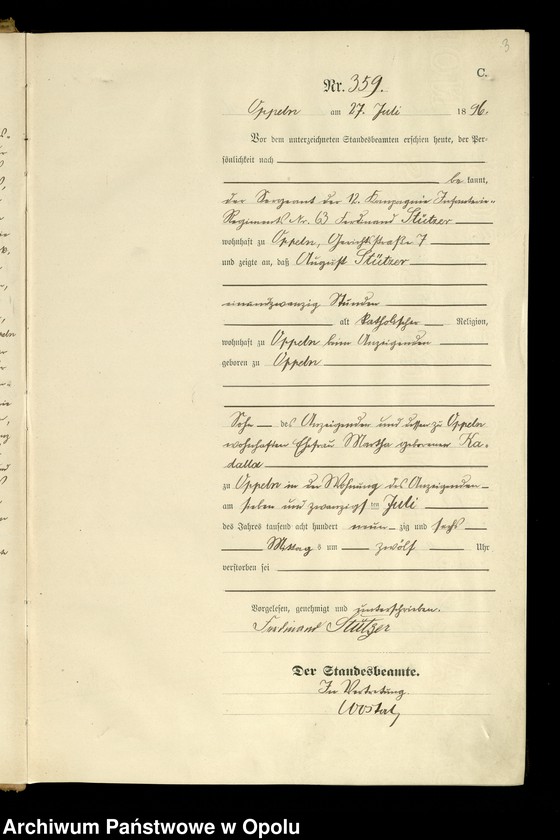 3
C.
Nr. 359.
Oppeln am 27. Juli 1896.
Vor dem unterzeichneten Standesbeamten erschien heute, der Per-
sönlichkeit nach
be kannt,
der Sergeant der 12. Kompagnie Infanterie-
Regiments Nr. 63 Ferdinand Stützer
wohnhaft zu Oppeln, Gerichtsstraße 7
und zeigte an, daß August Stützer
einundzwanzig Stunden
alt katholischer Religion,
wohnhaft zu Oppeln beim Anzeigenden
geboren zu Oppeln
Sohn des Anzeigenden und dessen zu Oppeln
wohnhaften Ehefrau Martha geborener Ka-
dalla
zu Oppeln in der Wohnung des Anzeigenden
am sieben und zwanzigsten Juli
des Jahres tausend acht hundert neun zig und sechs
Mittags um zwölf Uhr
verstorben sei
Vorgelesen, genehmigt und unterschrieben.
Ferdinand Stützer
Der Standesbeamte.
In Vertretung.
Archiwum Państwowe w Opolu